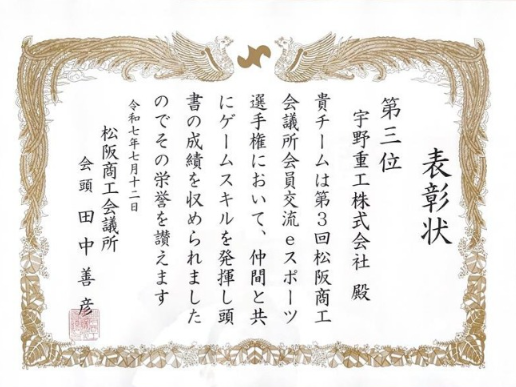 表彰状
第三位
宇野重工株式会社 殿
貴チームは第3回松阪商工
会議所会員交流eスポーツ
選手権において、仲間と共
にゲームスキルを発揮し頭
書の成績を収められました
のでその栄誉を讃えます
令和七年七月十二日
松阪商工会議所
会頭 田中善彦